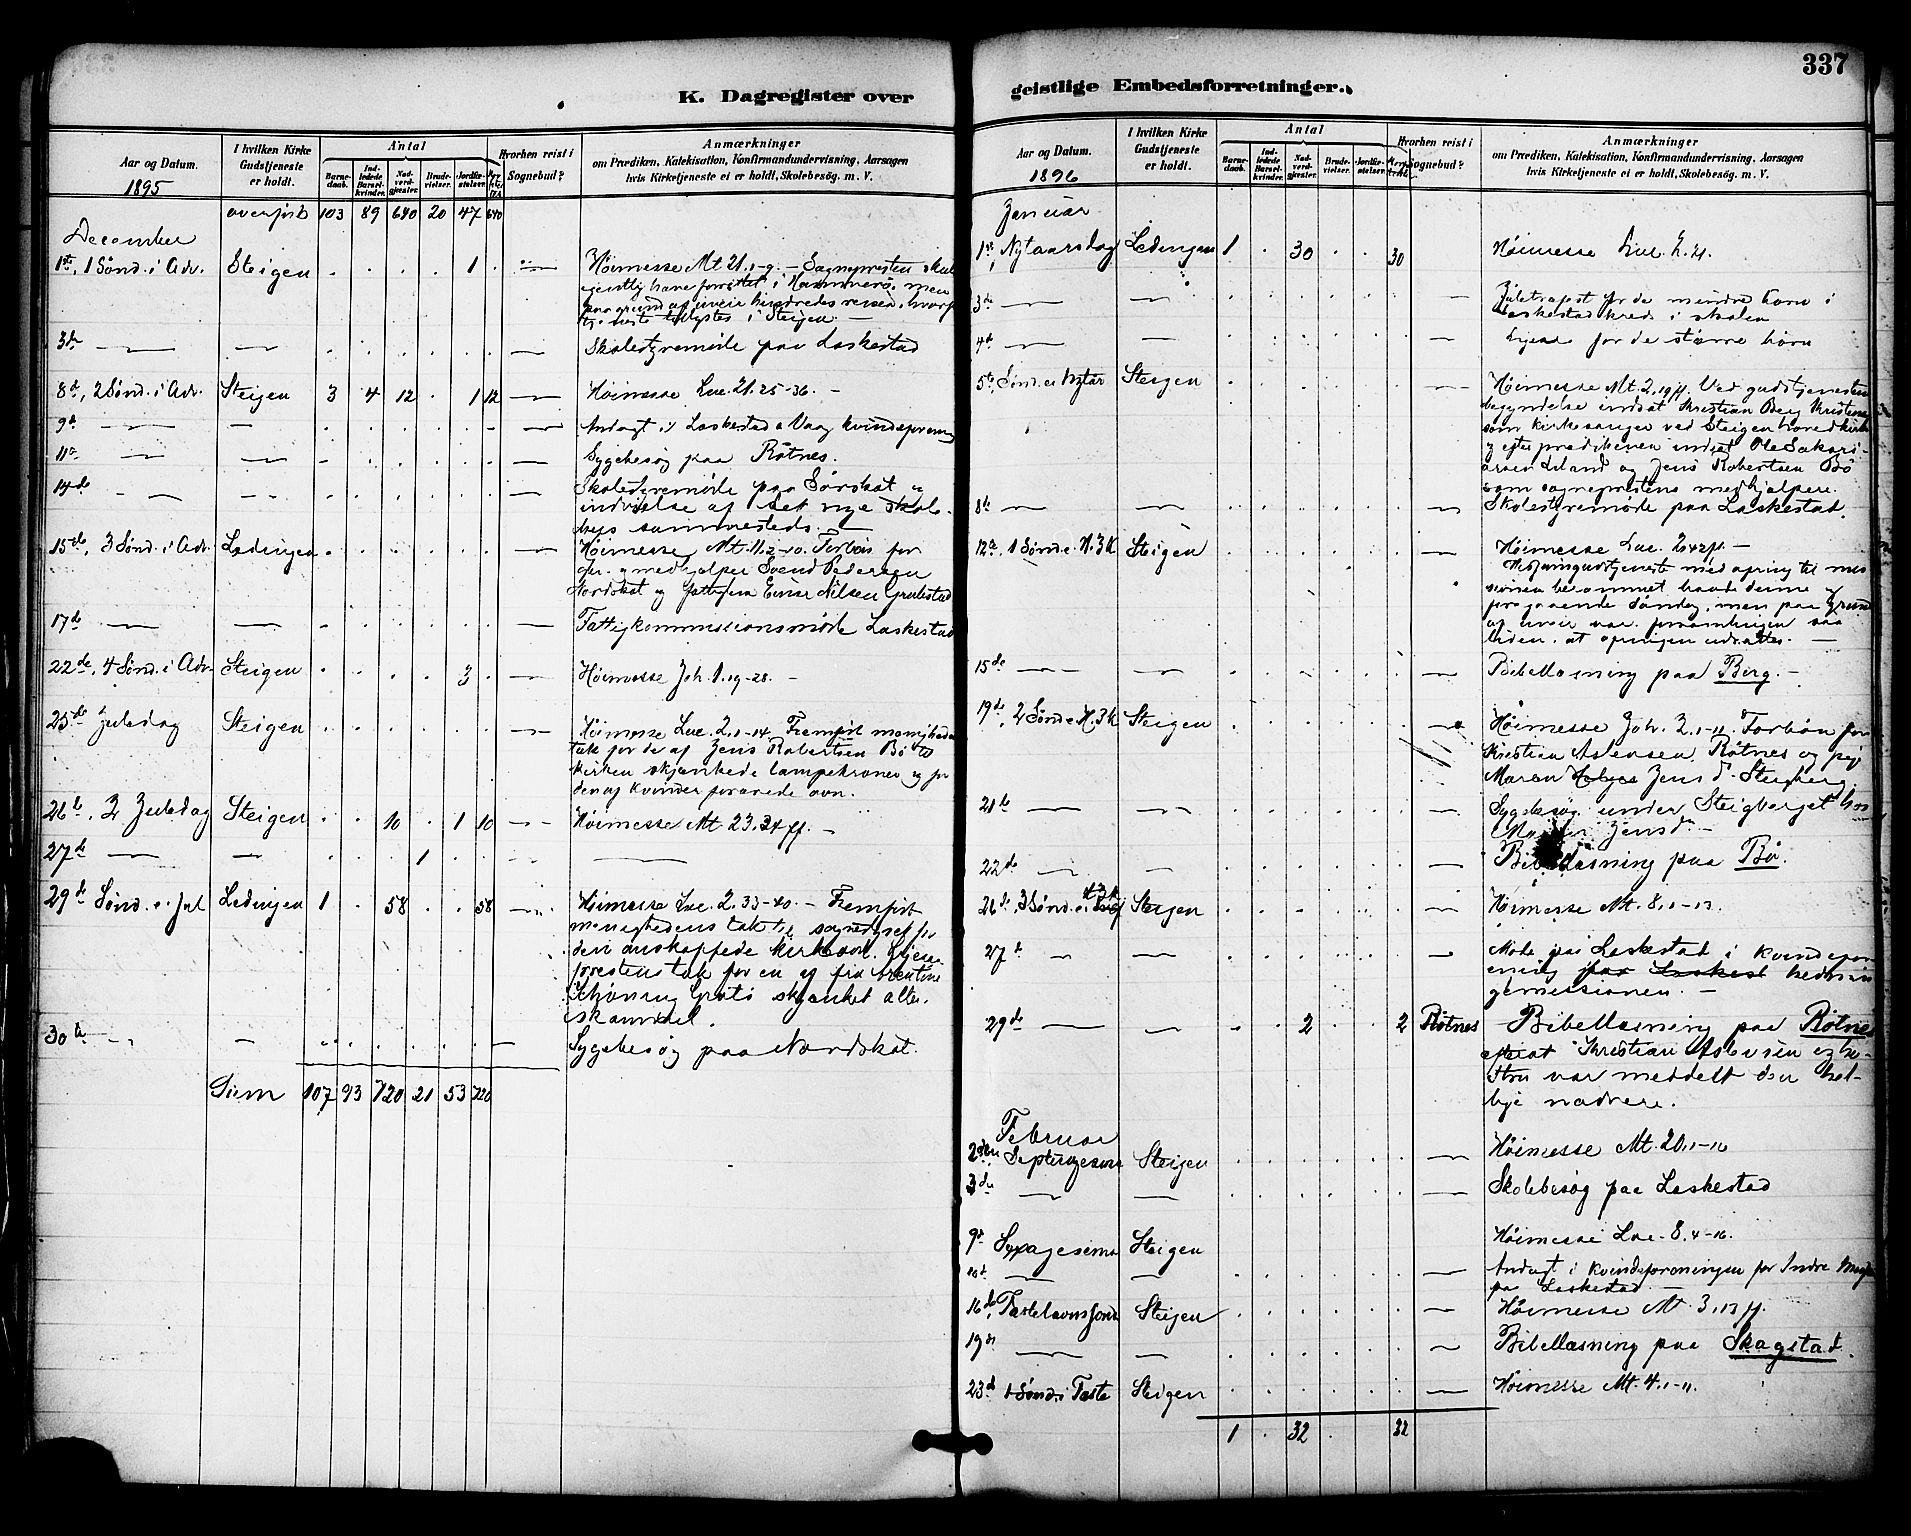 337
K. Dagregister over
geistlige Embedsforretninger.
Aar og Datum.
1895
I hvilken Kirke Gudstjeneste er holdt.
Antal
Barnedaab.
Indledede Barselkvinder.
Nadverdgjester.
Brudevielser.
Jordfæstelser.
Hvorhen reist i Sognebud?
Anmærkninger
om Prædiken, Katekisation, Konfirmandundervisning, Aarsagen
hvis Kirketjeneste ei er holdt, Skolebesøg. m. V.
overført 103 89 640 20 47 640
December
1ste, 1 Sønd. i Adv. Steigen 1 Høimesse Mt 21.1-9. – Sognepresten skul
egentlig have forrettet i Hammerø, men
paa grund af uveir hindredes reisen, hvorf
messe i Steigen. –
3de Skolestyremøde paa Laskestad
8de, 2 Sønd. i Adv. Steigen 3 4 12 1 12 Høimesse Luc. 21.25-36. –
9de Andagt i Laskestad & Vaag kvindeforening
11te Sygebesøg paa Røtnes.
14de Skolestyremøde paa Nordskot og
indvielse af det nye skole-
hus sammesteds. –
15de, 3 Sønd. i Adv. Ledingen Høimesse Mt. 11.2-10. Forbøn for
medhjælper Svend Pedersen
Nordskot og Einar Nilsen
17de Fattigkommissionsmøde Laskestad
22de, 4 Sønd. i Adv. Steigen 3 Høimesse Joh. 1.19-28. –
25de Juledag Steigen Høimesse Luc. 2.1-14. Fremført menigheden
tak for de af Jens Robertsen Bø til
kirken skjænkede lampekroner og for
den af kvinder forærede ovn.
26de, 2 Juledag Steigen 10 1 10 Høimesse Mt 23.34 ff. –
27de 1
29de Sønd. e. Jul Ledingen 1 58 58 Høimesse Luc. 2.33-40. – Fremført
menighedens tak til sognestyret for
den anskaffede kirkeovn. Ligesaa
prestens tak for en af frk
skjænket alter-
skammel.
30te Sygebesøg paa Nordskot.
Sum 107 93 720 21 53 720
Aar og Datum.
1896
I hvilken Kirke Gudstjeneste er holdt.
Antal
Barnedaab.
Indledede Barselkvinder.
Nadverdgjester.
Brudevielser.
Jordfæstelser.
Hvorhen reist i Sognebud?
Anmærkninger
om Prædiken, Katekisation, Konfirmandundervisning, Aarsagen
hvis Kirketjeneste ei er holdt, Skolebesøg. m. V.
Januar
1ste, Nytaarsdag Ledingen 1 30 30 Høimesse Luc. 2.21.
3de Juletræfest for de mindre børn i
Laskestad kreds i skolen
4de Ligesaa for de større børn
5te Sønd. e. Nytår Steigen Høimesse Mt. 2.19 ff. Ved gudstjenesten
begyndelse indsat Kristian Berg Kristens
som kirkesanger ved Steigen hovedkirke
og efter prædikenen indsat Ole Sakari-
assen Leland og Jens Robertsen Bø
som sogneprestens medhjælpere.
8de Skolestyremøde paa Laskestad.
12te, 1 Sønd. e. H. 3 K Steigen Høimesse Luc. 2.42 ff. –
Missionsgudstjeneste med ofring til mis
sionen berammet baade denne og
foregaaende søndag, men paa grund
af uveir var forsamlingen saa
liden, at ofringen udsattes. –
15de Bibellæsning paa Berg. –
19de, 2 Sønd. e. H. 3 K Steigen Høimesse Joh. 2.1-11. Forbøn for
Kristian Astensen Røtnes og pige
Maren Jensd. Steigberg
21de Sygebesøg under Steigberget hos
Jensd. –
22de Bibellæsning paa Bø.
26de, 3 Sønd. e. H 3 K Steigen Høimesse Mt. 8.1-13.
27de Møde paa Laskestad i kvindefor
ening paa Laskest hednin
gemissionen. –
29de 2 2 Røtnes Bibellæsning paa Røtnes
efterat Kristian Astensen og hu-
stru var meddelt den hel-
lige nadvere.
Februar
2den Septuagesima Steigen Høimesse Mt. 20.1-16
3de Skolebesøg paa Laskestad
9de Sexagesima Steigen Høimesse Luc. 8.4-16.
10de Andagt i kvindeforeningen for Indre Mission
paa Laskestad
16de, Fastelavnssønd Steigen Høimesse Mt. 3.13 ff.
19de Bibellæsning paa Skagstad.
23de 1 Sønd. i Faste Steigen Høimesse Mt. 4.1-11.
1 32 32